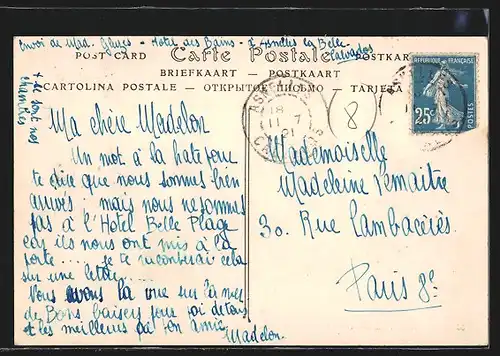 Envoi de Mad. - Hotel des Bains - à Asnelles la Belle
Calvados
POST CARD Carte Postale POSTKARTE
BRIEFKAART — POSTKAART
CARTOLINA POSTALE — ОТКРЫТОЕ ПИСЬМО — TARJETA
RÉPUBLIQUE FRANÇAISE
25c
POSTES
ASNELLES
18
11 7
21
CALVADOS
8
+ ce sont nos
chambres
Ma chère Madelon
Un mot à la hate pour
te dire que nous sommes bien
arrivés : mais nous ne sommes
pas à l'Hotel Belle Plage
car ils nous ont mis à la
porte..... je te raconterai cela
sur une lettre....
Vous avons la vue sur la mer
de Bons baisers pour toi de tous
et les meilleurs de ton amie
Madelon.
Mademoiselle
Madeleine Lemaitre
30. Rue Cambacérès
Paris 8e